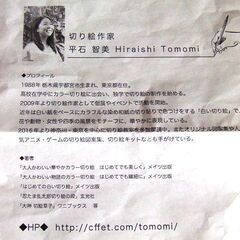 切り絵作家
平石 智美 Hiraishi Tomomi
◆プロフィール
1988年 栃木県宇都宮市生まれ、東京都在住。
高校在学中にカラー切り絵に出会い、独学で切り絵の制作を始める。
2009年より切り絵作家として個展やイベントで活動を開始。
近年は白い紙をベースにカラフルな染め和紙の切り貼りで色をつける「白い切り絵」で、
花や動物・女性や四季の風景をモチーフに、華やかに表現している。
2016年より神奈川・東京を中心に切り絵教室を多数
気アニメ・ゲームの切り絵図案集、切り絵キットなども手がけている。
◆著書
「大人かわいい華やかカラー切り絵 はじめてでも楽しく」メイツ出版
「大人かわいい物語のカラー切り絵 はじめてでも美しく」メイツ出版
「はじめての白い切り絵」メイツ出版
「忍たま乱太郎切り絵の段」玄光社
「大神 切絵草子」ワニブックス 著
◆HP◆http://cffet.com/tomomi/